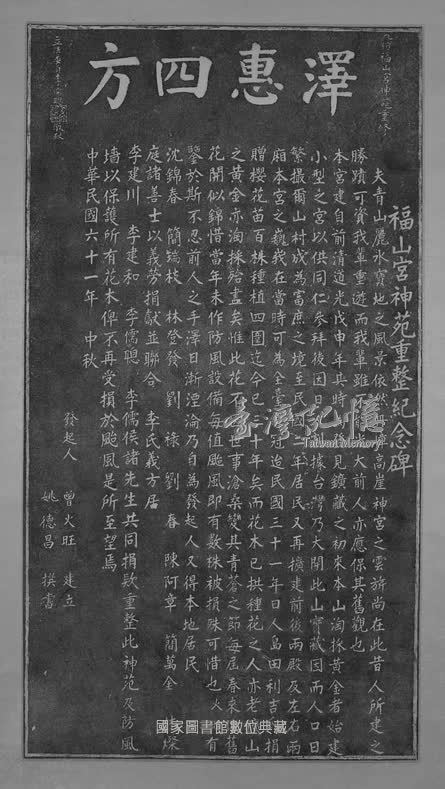 澤惠四方
福山宮神苑重整紀念碑
夫青山麗水寶地之風景依然
高崖神宮之雲旂尚在此昔人所建之
勝蹟可寶我輩重遊而我輩雖不
大前人亦應保其舊觀也
本宮建自前清道光戊申年其時
後見鑛藏之初來本山淘採黃金者始建
小型之宮以供同仁參拜後因日
據台灣乃大開此山寶藏因而人口日
繁撮爾山村成為富庶之境至民國
年居民又再擴建前後兩殿及左右兩
廂本宮之巍我在當時可為全臺
冠迨民國三十一年日人島田利吉捐
贈櫻花苗百株種植四圍迄今已
十年矣而花木已拱種花之人亦老
山
之黃金亦淘採殆盡矣惟此花不
世事滄桑變其青蒼之節每屆春來
舊
花開似錦惜當年未作防風設備每值颱風即有數株被損殊可惜也火
有
鑒於斯不忍前人之手澤日漸湮淪乃自為發起人又得本地居民
沈錦春 簡瑞枝 林登發 劉祿 劉春 陳阿章 簡萬全
燦
庭諸善士以義勞捐獻並聯合 李氏義方居
李建川 李建和 李儒聰 李儒侯諸先生共同捐款重整此神苑及防風
墻以保護所有花木俾不再受損於颱風是所至望焉
中華民國六十一年 中秋
發起人 曾火旺 建立
姚德昌 撰書
臺灣記憶
國家圖書館數位典藏